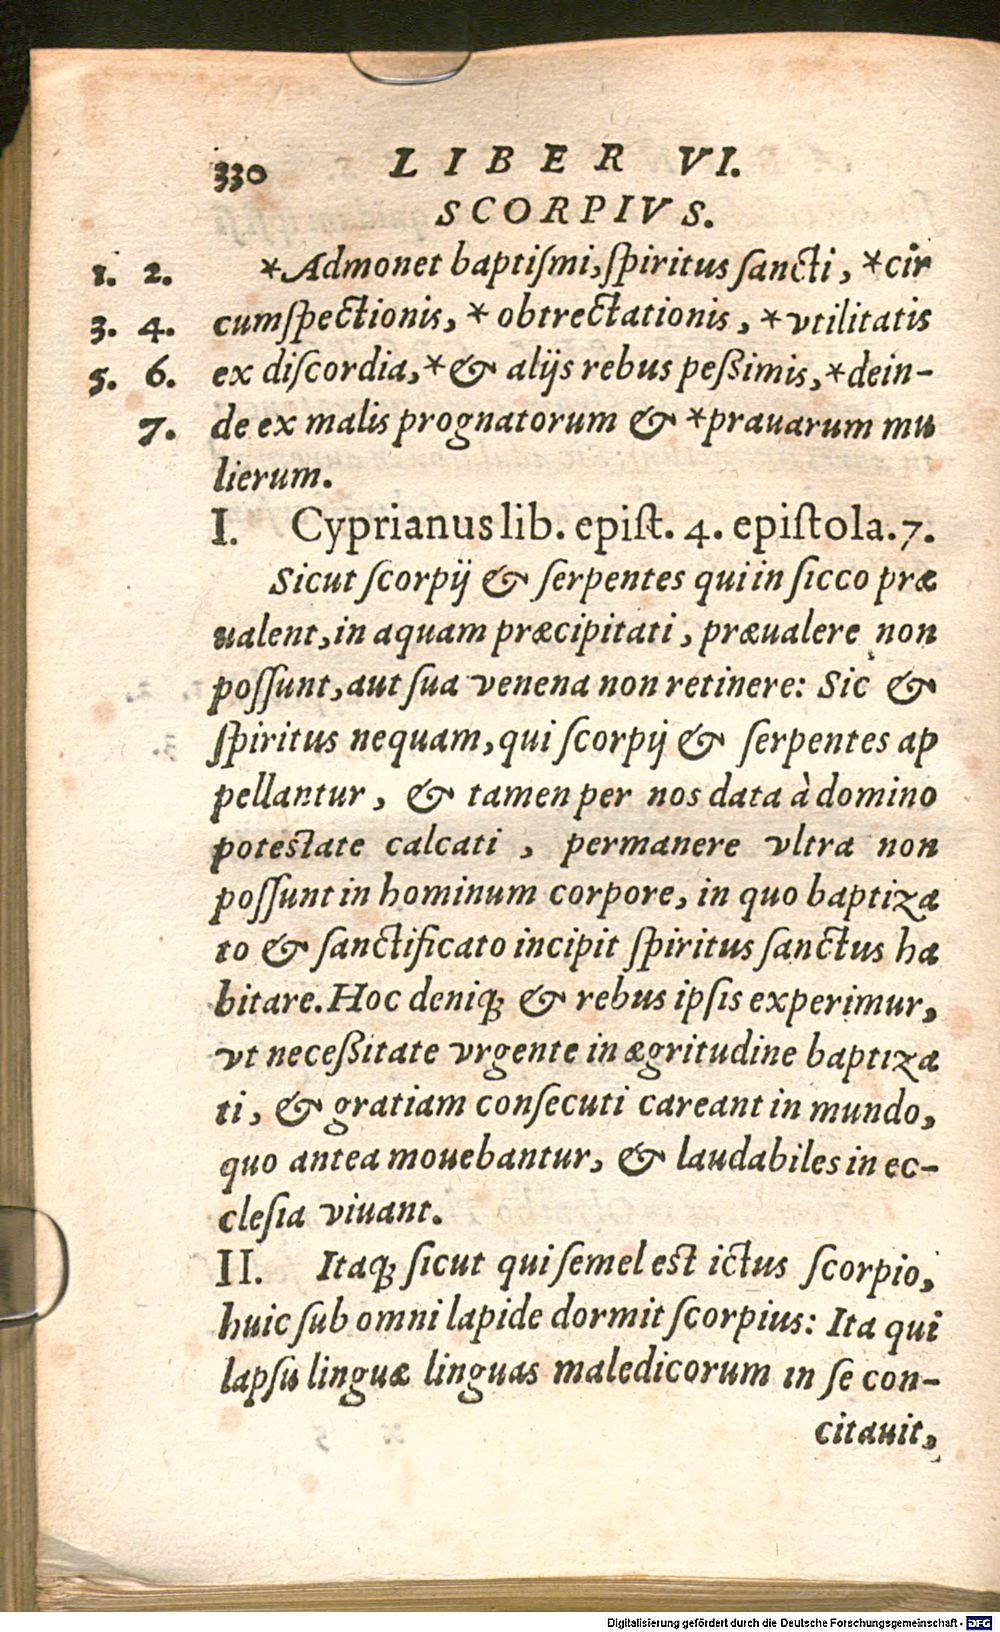 330 LIBER VI.
SCORPIVS.
1. 2. *Admonet baptiſmi,ſpiritus ſancti, *cir
3. 4. cumſpectionis, * obtrectationis, *vtilitatis
5. 6. ex diſcordia,*& alijs rebus peßimis,*dein-
7. de ex malis prognatorum & *prauarum mu
lierum.
I. Cyprianus lib. epiſt. 4. epiſtola.7.
Sicut ſcorpij & ſerpentes qui in ſicco præ
ualent,in aquam præcipitati, præualere non
poſſunt,aut ſua venena non retinere: Sic &
ſpiritus nequam,qui ſcorpij & ſerpentes ap
pellantur, & tamen per nos data à domino
poteſtate calcati , permanere vltra non
poſſunt in hominum corpore, in quo baptiza
to & ſanctificato incipit ſpiritus ſanctus ha
bitare. Hoc deniq; & rebus ipſis experimur,
vt neceßitate vrgente in ægritudine baptiza
ti, & gratiam conſecuti careant in mundo,
quo antea mouebantur, & laudabiles in ec-
cleſia viuant.
II. Itaq; ſicut qui ſemel eſt ictus ſcorpio,
huic ſub omni lapide dormit ſcorpius: Ita qui
lapſu linguæ linguas maledicorum in ſe con-
citauit,
Digitalisierung gefördert durch die Deutsche Forschungsgemeinschaft - DFG